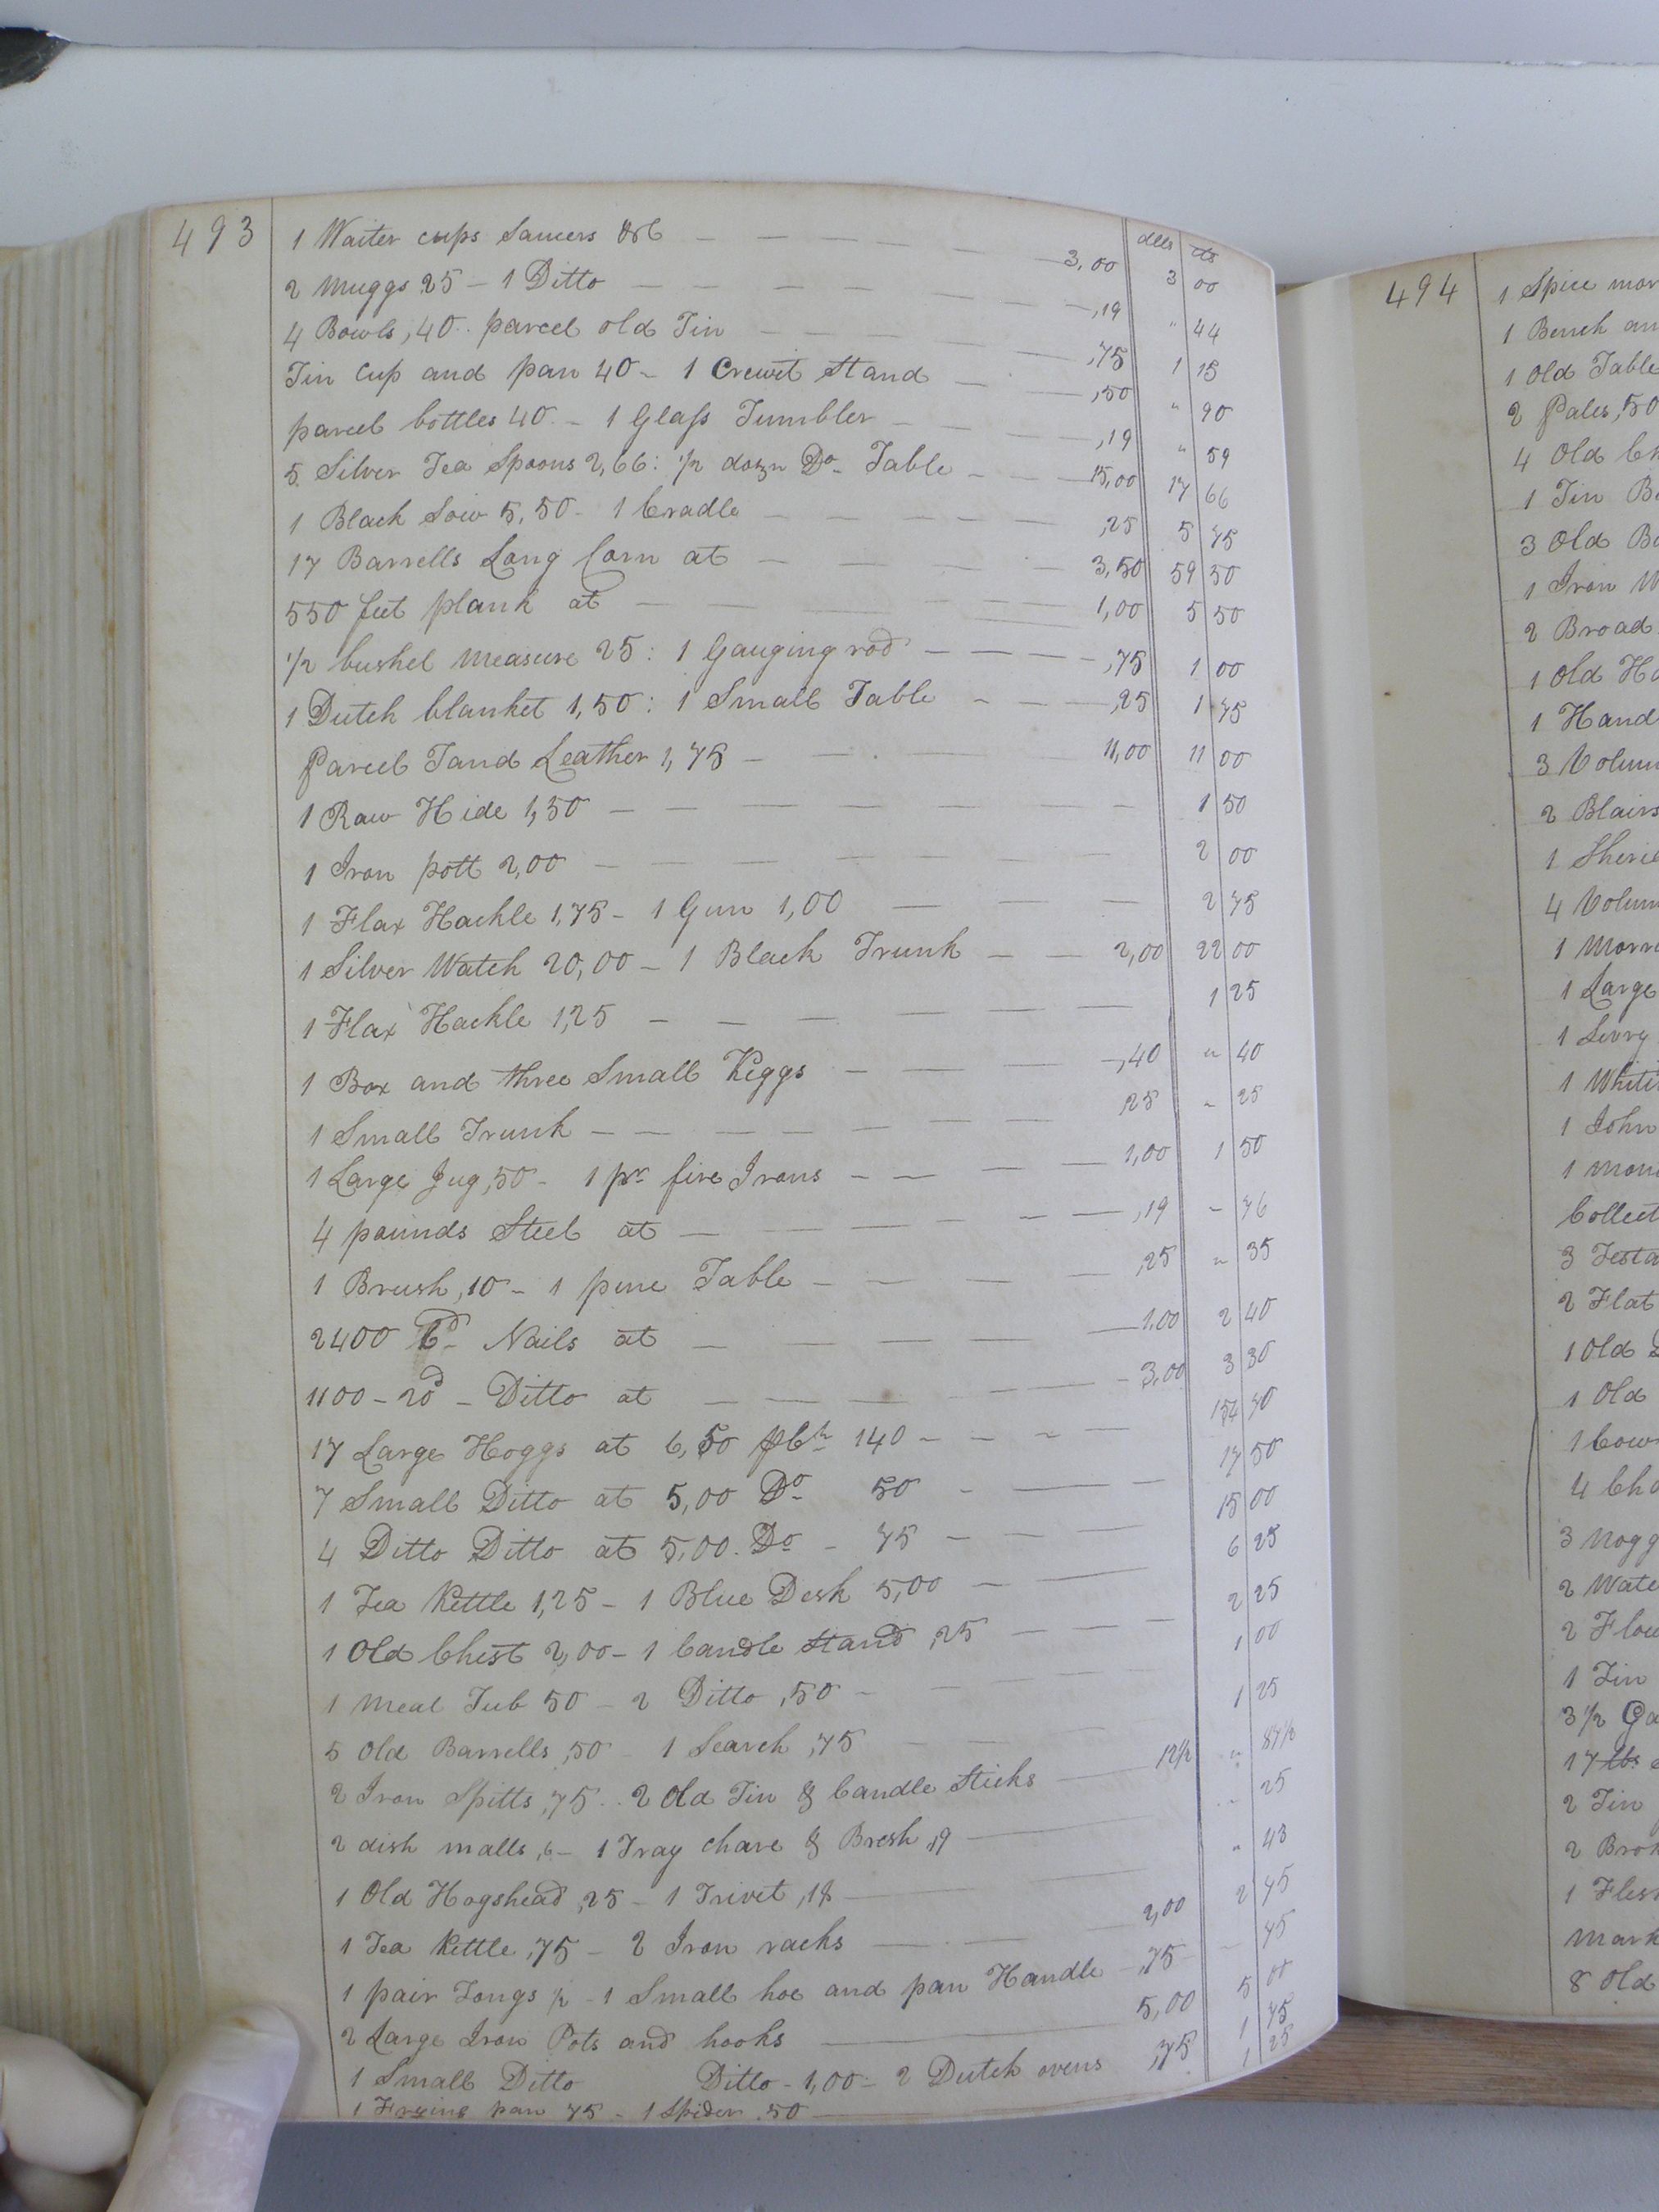 493
dlls cts
1 Waiter cups Saucers &c — 3,00 3 00
2 Muggs 25 – 1 Ditto — ,19 " 44
4 Bowls ,40 .. parcel old Tin — ,75 1 15
Tin Cup and pan 40 – 1 Crewit Stand — ,50 " 90
parcel bottles 40 – 1 Glass Tumbler — ,19 " 59
5 Silver Tea Spoons 2,66 : 1/2 dozn Do Table — 15,00 17 66
1 Black Sow 5,50 – 1 Cradle — ,25 5 75
17 Barrells Long Corn at — 3,50 59 50
550 feet plank at — 1,00 5 50
1/2 bushel measure 25 : 1 Gauging rod — ,75 1 00
1 Dutch blanket 1,50 : 1 Small Table — ,25 1 75
Parcel Tand Leather 1,75 — 11,00 11 00
1 Raw Hide 1,50 — 1 50
1 Iron pott 2,00 — 2 00
1 Flax Hackle 1,75 – 1 Gun 1,00 — 2 75
1 Silver Watch 20,00 – 1 Black Trunk — 2,00 22 00
1 Flax Hackle 1,25 — 1 25
1 Box and three Small Keggs — ,40 " 40
1 Small Trunk — ,25 " 25
1 Large Jug ,50 – 1 pr fire Irons — 1,00 1 50
4 pounds Steel at — ,19 " 76
1 Brush ,10 – 1 pine Table — ,25 " 35
2400 6d Nails at — 1.00 2 40
1100 – 20d – Ditto at — 3,00 3 30
17 Large Hoggs at 6,50 140 — 154 70
7 Small Ditto at 5,00 Do 50 — 17 50
4 Ditto Ditto at 5,00. Do – 75 — 15 00
1 Tea Kettle 1,25 – 1 Blue Desk 5,00 — 6 25
1 Old Chest 2,00 – 1 Candle Stand ,25 — 2 25
1 Meal Tub 50 – 2 Ditto ,50 — 1 00
5 Old Barrells ,50 – 1 Search ,75 — 1 25
2 Iron Spitts ,75 .. 2 Old Tin & Candle Sticks — 12 1/2 " 87 1/2
2 dish matts ,6 – 1 Tray & Bresh ,19 — " 25
1 Old Hogshead ,25 – 1 Trivet ,18 — " 43
1 Tea Kettle ,75 – 2 Iron racks — 2,00 2 75
1 pair Tongs – 1 Small hoe and pan Handle – ,75 – 75
2 Large Iron Pots and hooks — 5,00 5 00
1 Small Ditto Ditto – 1,00 – 2 Dutch ovens ,75 1 75
1 Frying pan 75 – 1 Spider .50 — 1 25
494
1 Spice mor
1 Bench an
1 Old Table
2 Pales ,50
4 Old Ch
1 Tin B
3 Old Ba
1 Iron
2 Broad
1 Old Ho
1 Hand
3 Volum
2 Blairs
1 Sheri
4 Volum
1 Morr
1 Large
1
1 Whit
1 John
1 Mon
Collect
3 Testa
2 Flat
1 Old
1 Old
1 Cow
4 Cha
3 Nogg
2 Wate
2 Flow
1 Tin
3 1/2 Ga
17 lbs
2 Tin
2 Brok
1 Fles
Mark
8 Old